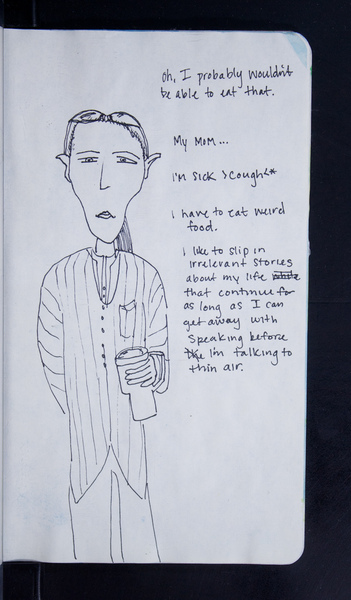 Oh, I probably wouldn't
be able to eat that.
My Mom...
I'm sick >cough<*
i have to eat weird
food.
i like to slip in
irrelevant stories
about my life
that continue for
as long as I can
get away with
speaking before
I'm talking to
thin air.